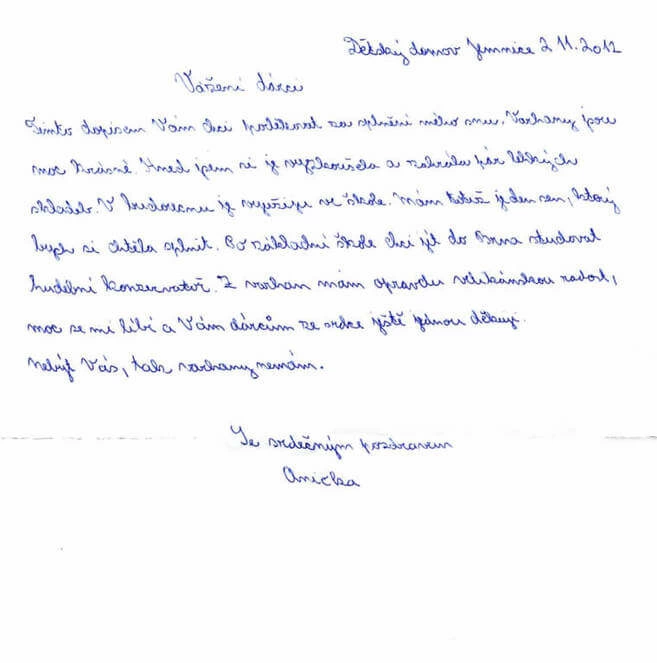 Dětský domov Jemnice 2.11.2012
Vážení dárci
Tímto dopisem Vám chci poděkovat za splnění mého snu. Varhany jsou
moc krásné. Hned jsem si je vyzkoušela a zahrála pár lehkých
skladeb. V budoucnu je využiju ve škole. Mám totiž jeden sen, který
bych si chtěla splnit. Po základní škole chci jít do Brna studovat
hudební konzervatoř. Z varhan mám opravdu velikánskou radost,
moc se mi líbí a Vám dárcům ze srdce ještě jednou děkuji.
Nebýt Vás, tak varhany nemám.
Se srdečným pozdravem
Anička